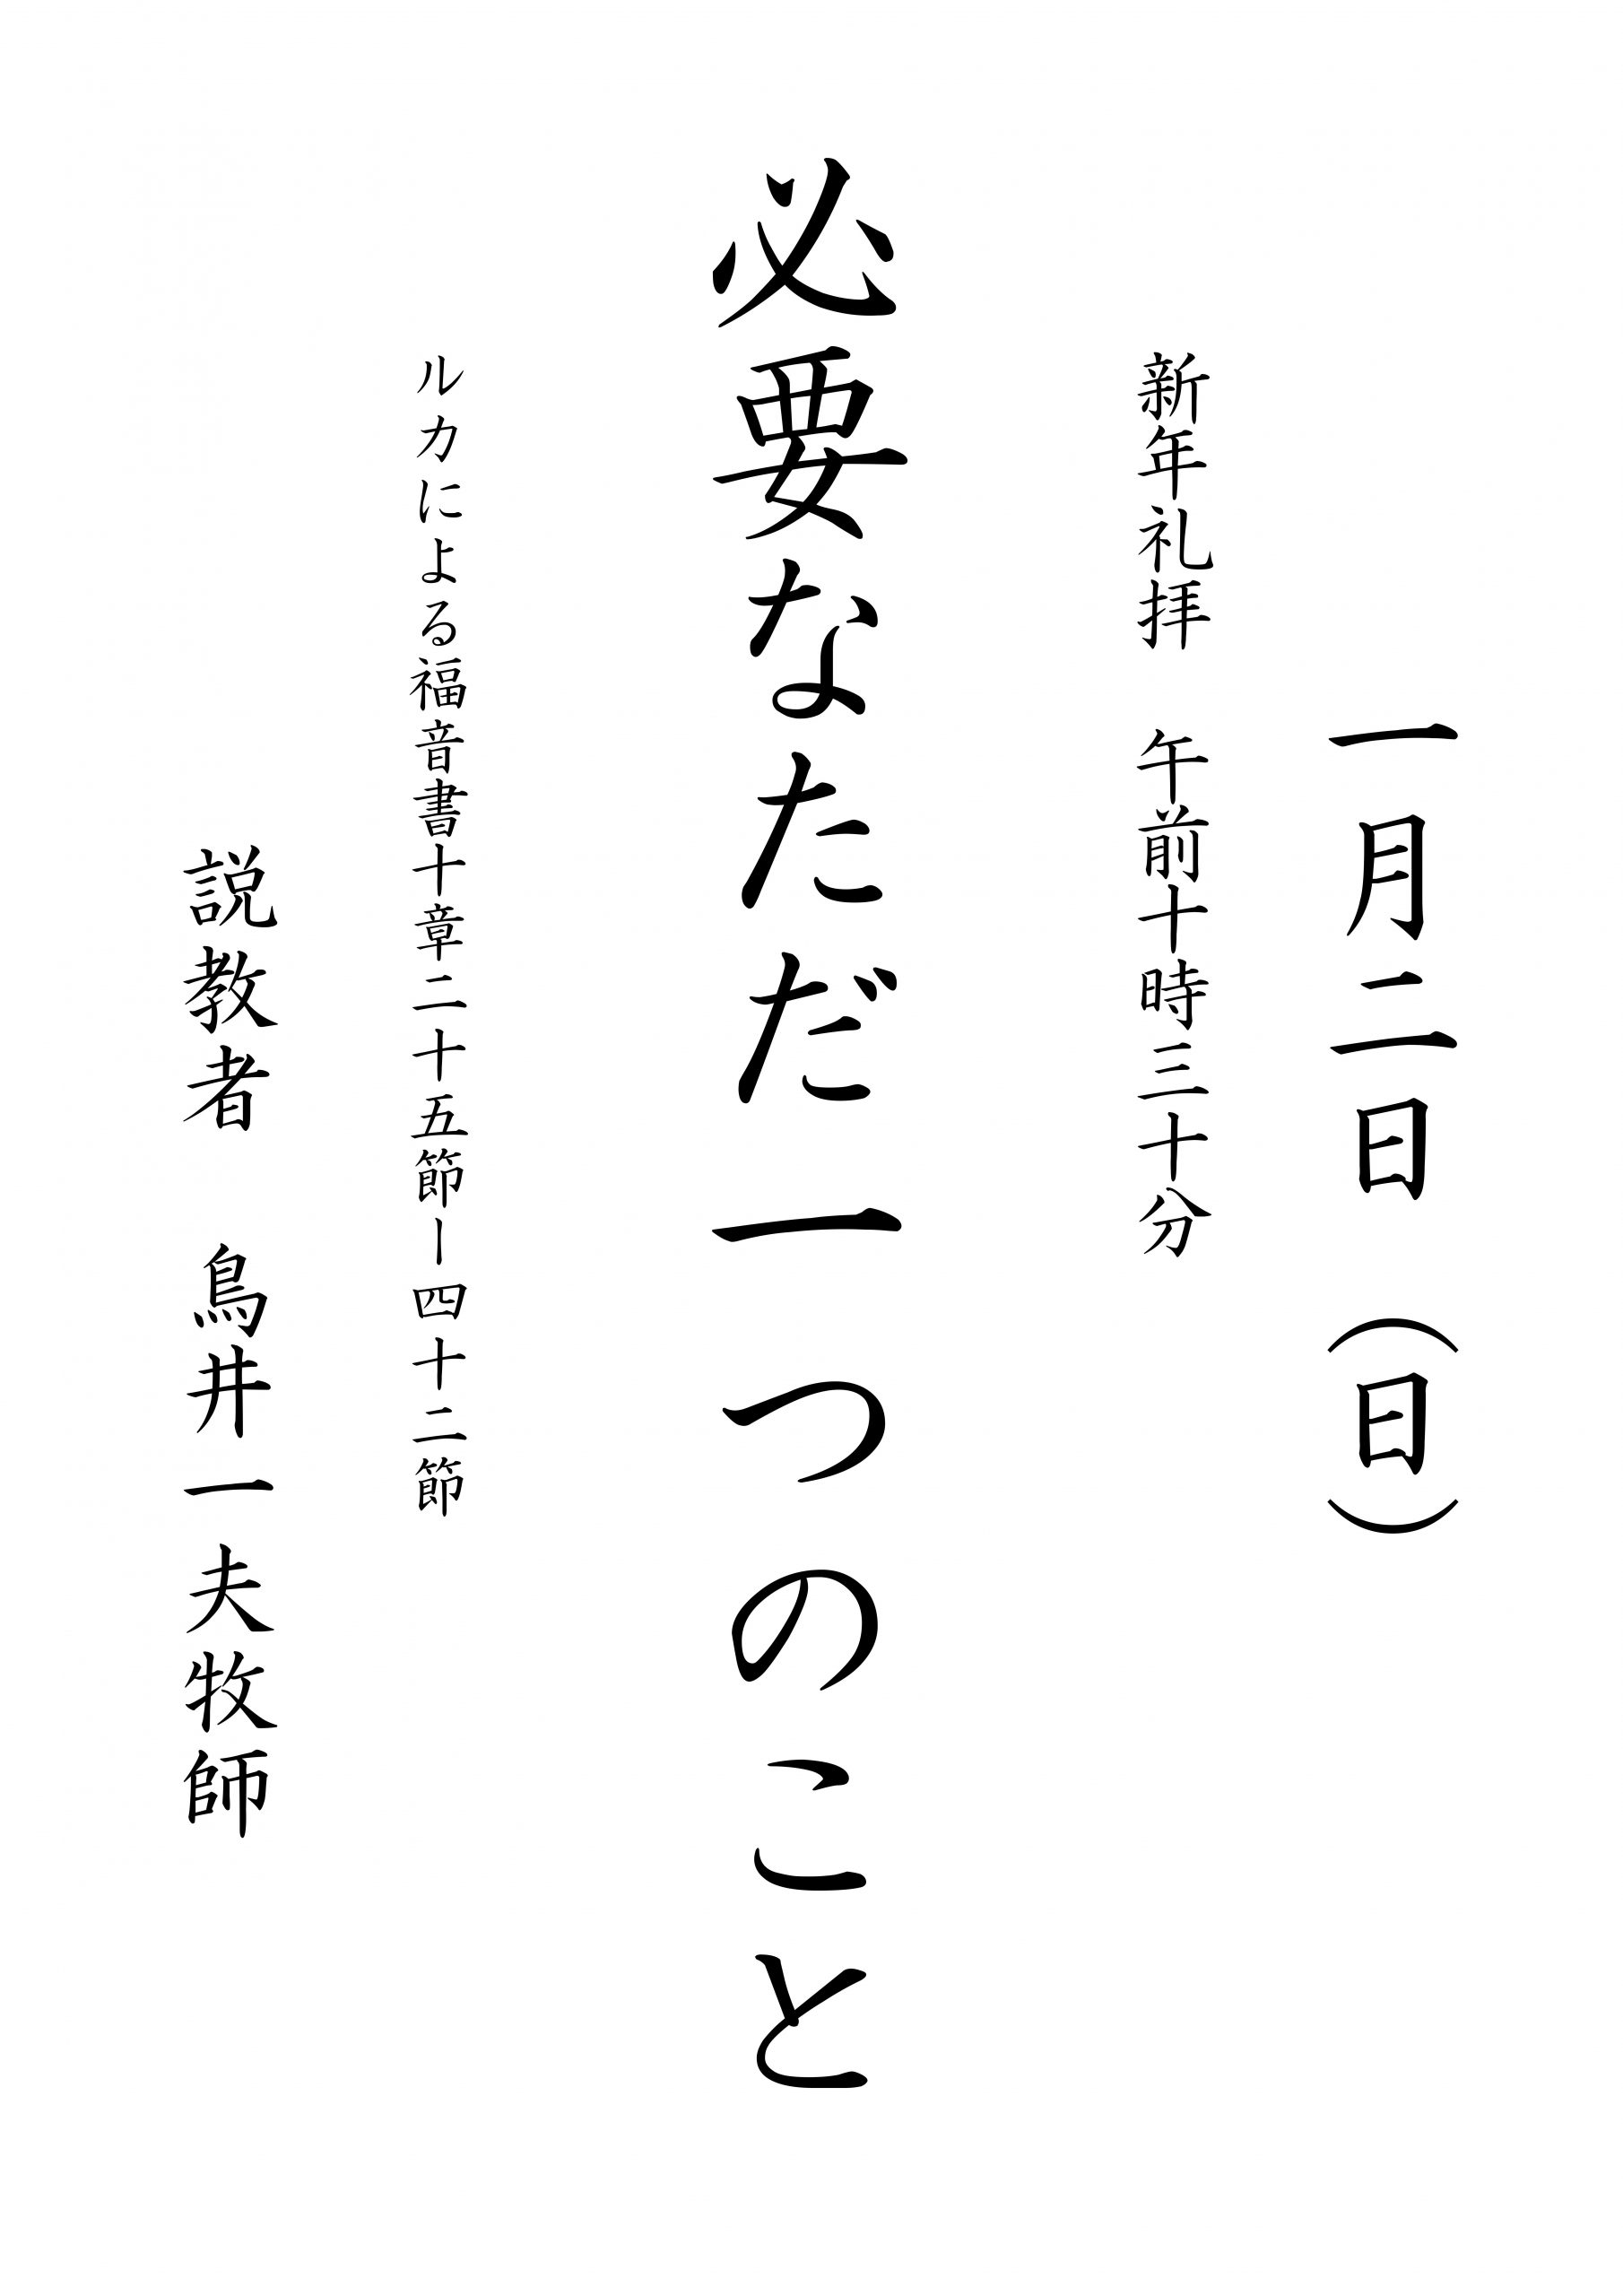 一月二日（日）
新年礼拝　午前十時三十分
必要なたただ一つのこと
ルカによる福音書十章二十五節ー四十二節
説教者　鳥井一夫牧師